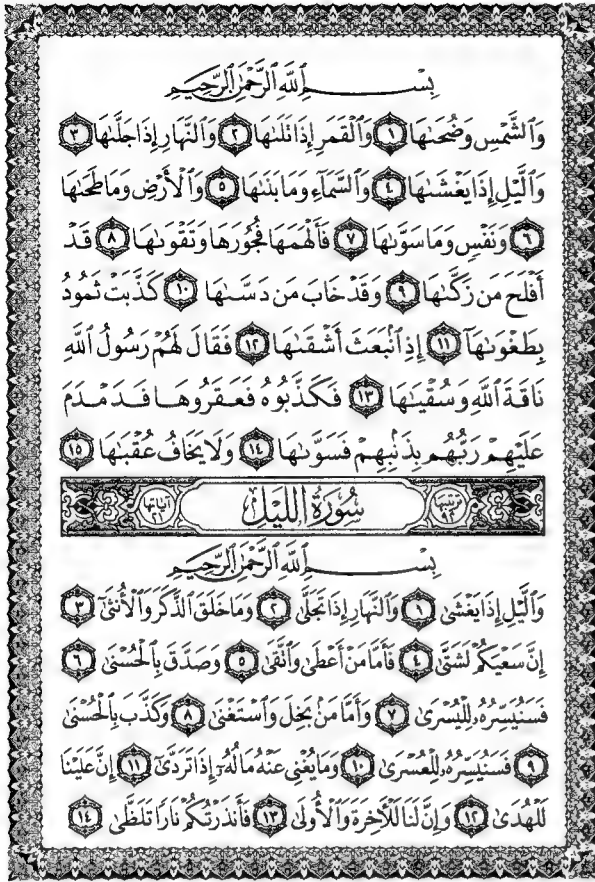 بِسْمِ ٱللَّهِ ٱلرَّحْمَٰنِ ٱلرَّحِيمِ
وَٱلشَّمْسِ وَضُحَىٰهَا ١ وَٱلْقَمَرِ إِذَا تَلَىٰهَا ٢ وَٱلنَّهَارِ إِذَا جَلَّىٰهَا ٣
وَٱلَّيْلِ إِذَا يَغْشَىٰهَا ٤ وَٱلسَّمَآءِ وَمَا بَنَىٰهَا ٥ وَٱلْأَرْضِ وَمَا طَحَىٰهَا
٦ وَنَفْسٍ وَمَا سَوَّىٰهَا ٧ فَأَلْهَمَهَا فُجُورَهَا وَتَقْوَىٰهَا ٨ قَدْ
أَفْلَحَ مَن زَكَّىٰهَا ٩ وَقَدْ خَابَ مَن دَسَّىٰهَا ١٠ كَذَّبَتْ ثَمُودُ
بِطَغْوَىٰهَآ ١١ إِذِ ٱنۢبَعَثَ أَشْقَىٰهَا ١٢ فَقَالَ لَهُمْ رَسُولُ ٱللَّهِ
نَاقَةَ ٱللَّهِ وَسُقْيَٰهَا ١٣ فَكَذَّبُوهُ فَعَقَرُوهَا فَدَمْدَمَ
عَلَيْهِمْ رَبُّهُم بِذَنۢبِهِمْ فَسَوَّىٰهَا ١٤ وَلَا يَخَافُ عُقْبَٰهَا ١٥
سُورَةُ اللَّيْلِ
بِسْمِ ٱللَّهِ ٱلرَّحْمَٰنِ ٱلرَّحِيمِ
وَٱلَّيْلِ إِذَا يَغْشَىٰ ١ وَٱلنَّهَارِ إِذَا تَجَلَّىٰ ٢ وَمَا خَلَقَ ٱلذَّكَرَ وَٱلْأُنثَىٰٓ ٣
إِنَّ سَعْيَكُمْ لَشَتَّىٰ ٤ فَأَمَّا مَنْ أَعْطَىٰ وَٱتَّقَىٰ ٥ وَصَدَّقَ بِٱلْحُسْنَىٰ ٦
فَسَنُيَسِّرُهُۥ لِلْيُسْرَىٰ ٧ وَأَمَّا مَنۢ بَخِلَ وَٱسْتَغْنَىٰ ٨ وَكَذَّبَ بِٱلْحُسْنَىٰ
٩ فَسَنُيَسِّرُهُۥ لِلْعُسْرَىٰ ١٠ وَمَا يُغْنِى عَنْهُ مَالُهُۥٓ إِذَا تَرَدَّىٰٓ ١١ إِنَّ عَلَيْنَا
لَلْهُدَىٰ ١٢ وَإِنَّ لَنَا لَلْءَاخِرَةَ وَٱلْأُولَىٰ ١٣ فَأَنذَرْتُكُمْ نَارًا تَلَظَّىٰ ١٤